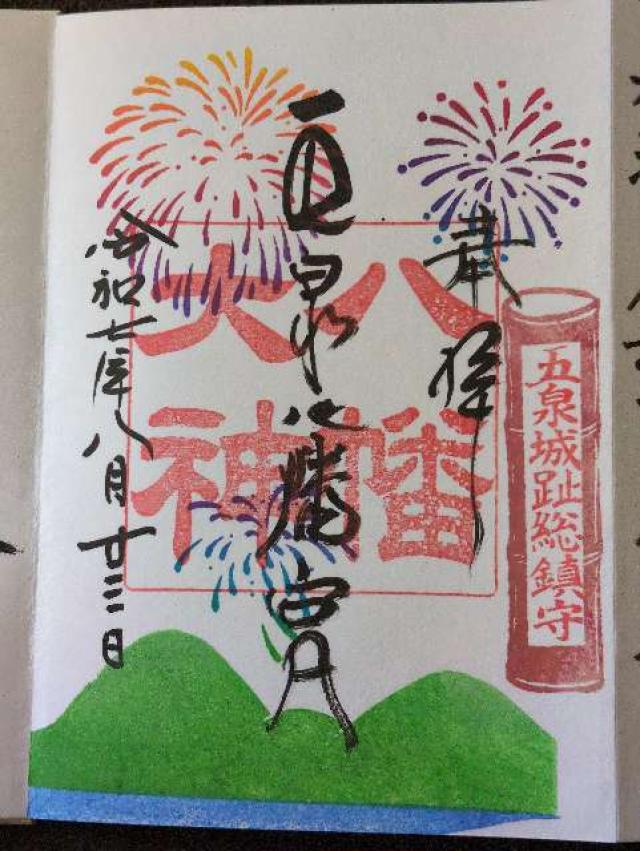 五泉城趾総鎮守
奉拝
八幡
大神
五泉八幡宮
令和七年八月廿三日